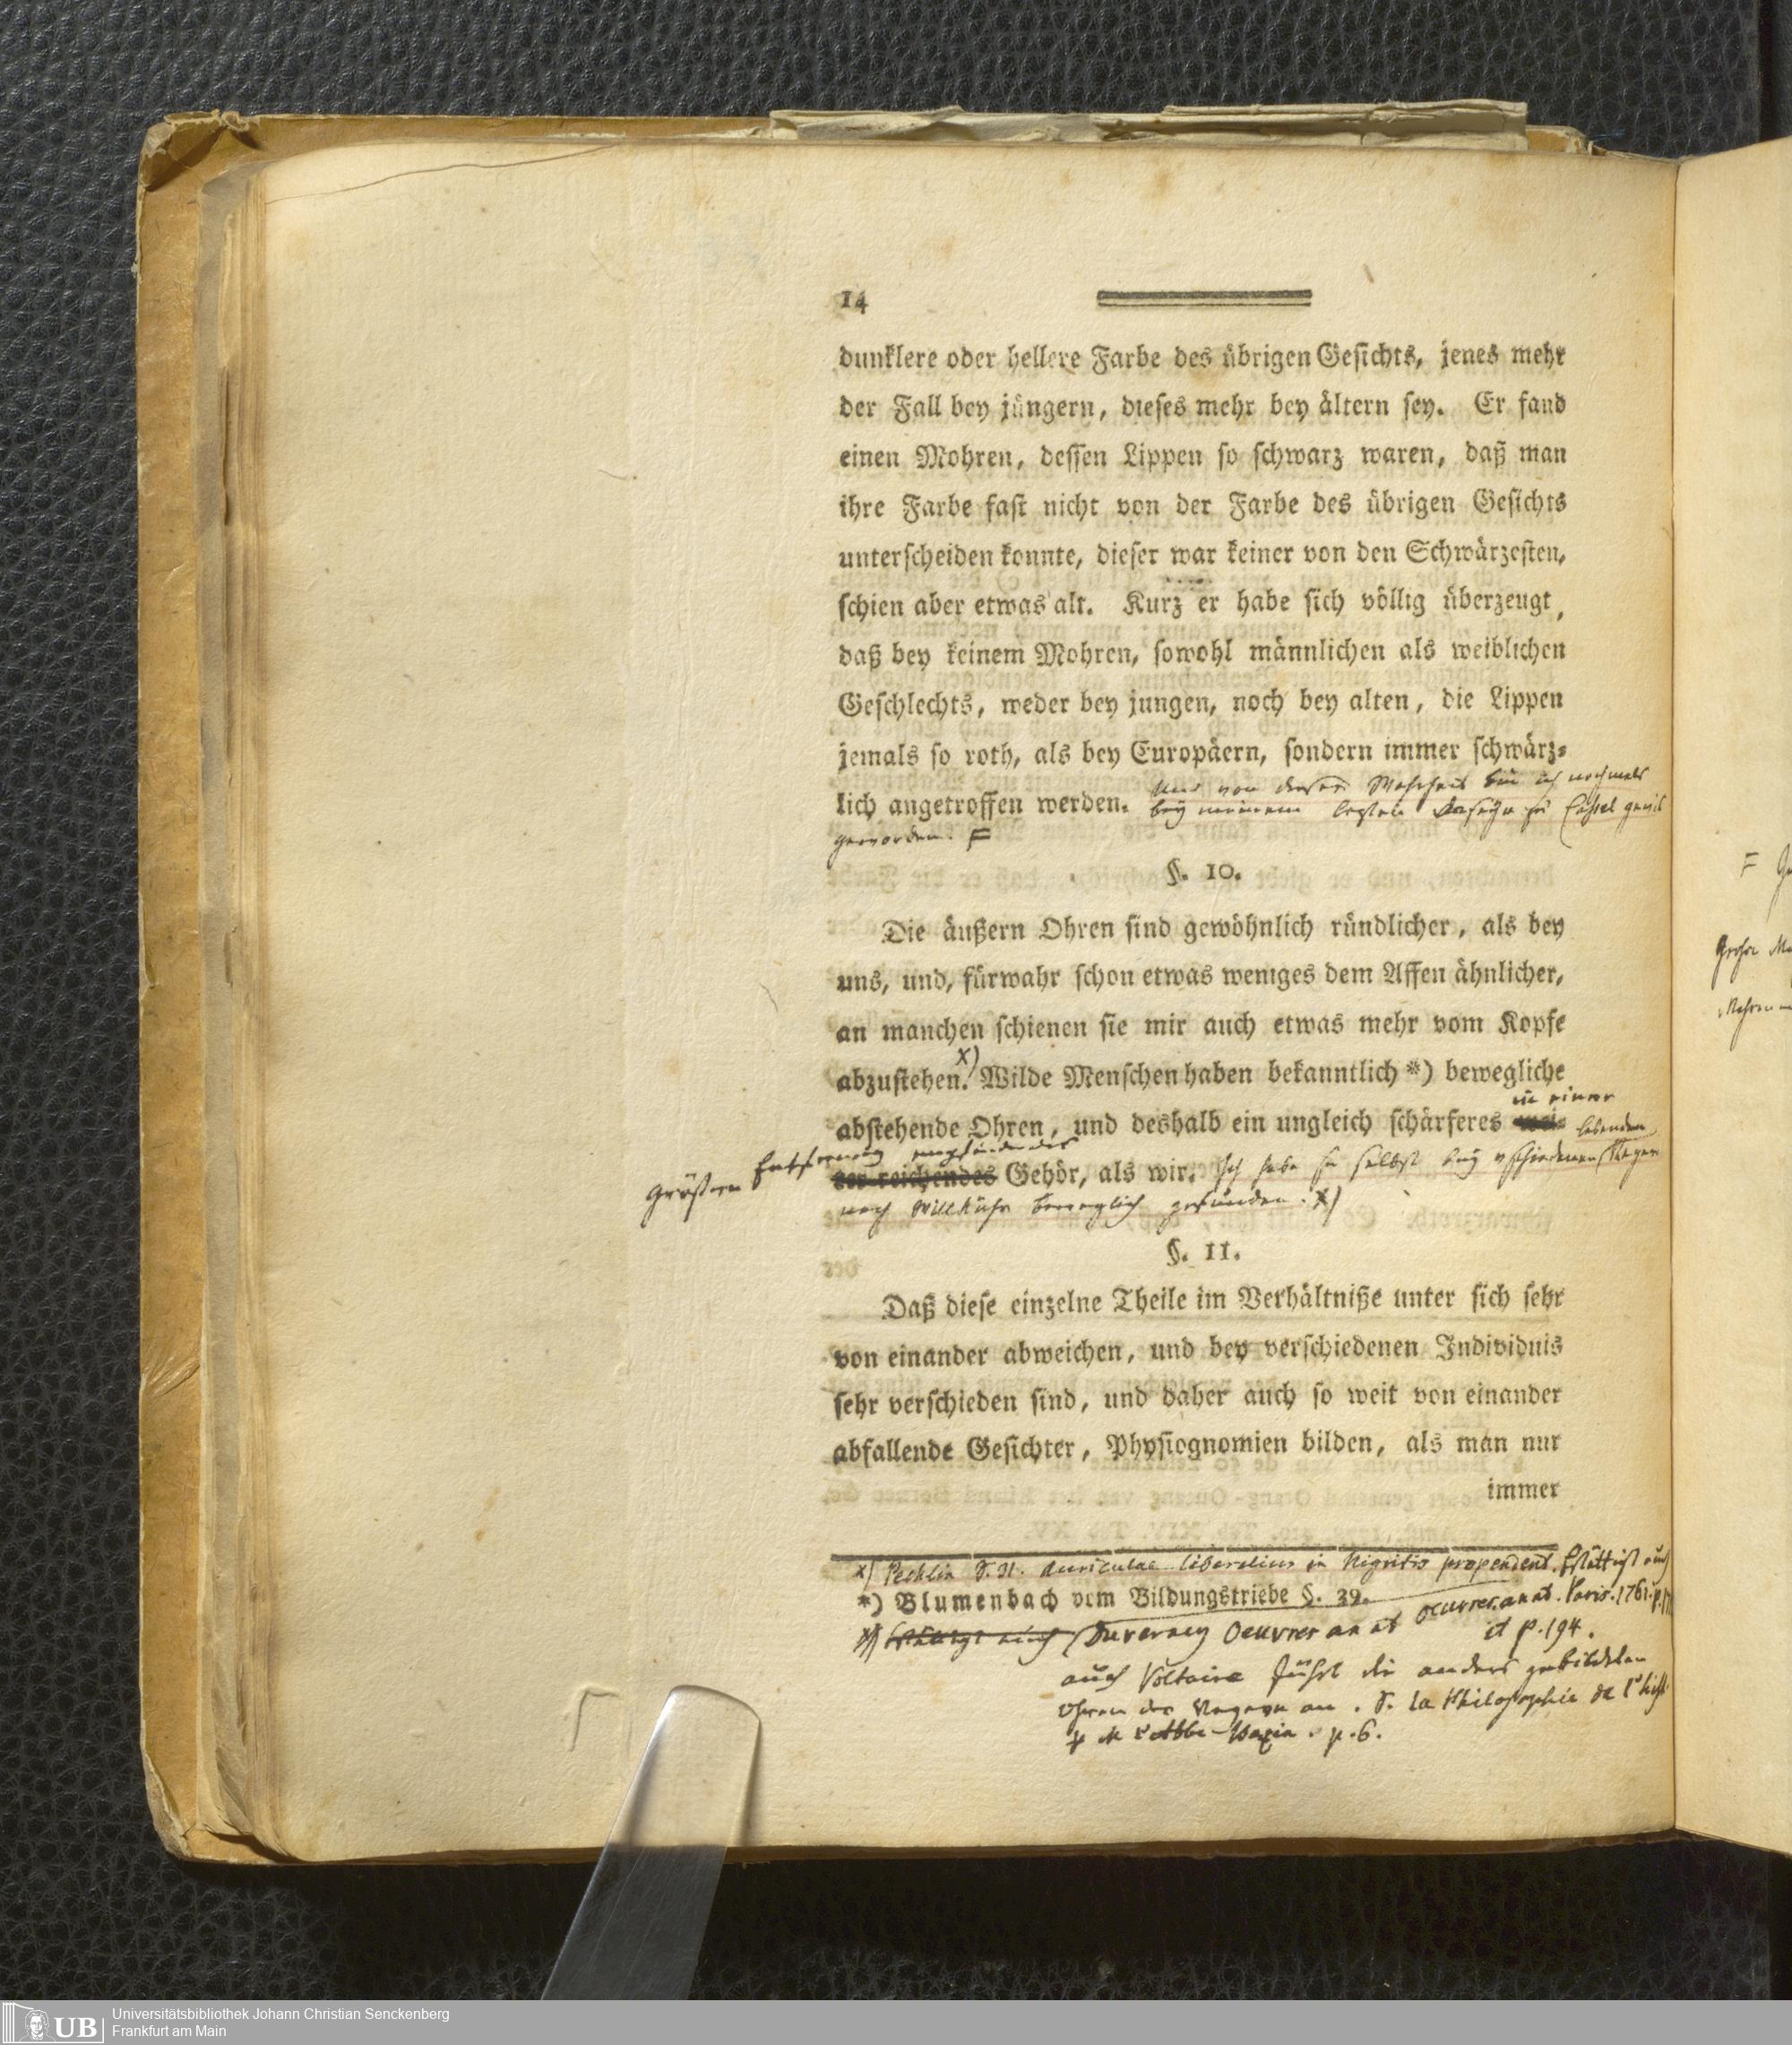 14
dunklere oder hellere Farbe des übrigen Gesichts, jenes mehr
der Fall bey jüngern, dieses mehr bey ältern sey. Er fand
einen Mohren, dessen Lippen so schwarz waren, daß man
ihre Farbe fast nicht von der Farbe des übrigen Gesichts
unterscheiden konnte, dieser war keiner von den Schwärzesten,
schien aber etwas alt. Kurz er habe sich völlig überzeugt,
daß bey keinem Mohren, sowohl männlichen als weiblichen
Geschlechts, weder bey jungen, noch bey alten, die Lippen
jemals so roth, als bey Europäern, sondern immer schwärz-
lich angetroffen werden.
Und von dieser Wahrheit bin ich nochmals
bey meinem letzten zu Cassel gewiß
geworden. F
§. 10.
Die äußern Ohren sind gewöhnlich ründlicher, als bey
uns, und, fürwahr schon etwas weniges dem Affen ähnlicher,
an manchen schienen sie mir auch etwas mehr vom Kopfe
abzustehen. x) Wilde Menschen haben bekanntlich *) bewegliche
abstehende Ohren, und deshalb ein ungleich schärferes wei-
in einer
größern Entfernung empfindendes
ter reichendes Gehör, als wir. Ich habe sie selbst bey verschiedenen lebenden Negern
nach Willkühr beweglich gefunden. x)
§. 11.
Daß diese einzelne Theile im Verhältniße unter sich sehr
von einander abweichen, und bey verschiedenen Individuis
sehr verschieden sind, und daher auch so weit von einander
abfallende Gesichter, Physiognomien bilden, als man nur
immer
x) Pechlin S. 11. Auriculae liberalius in Nigritis propendent. bestättigt auch
*) Blumenbach vom Bildungstriebe §. 39.
Duverney Oeuvres anat Oeuvres anat. Paris. 1761. p.
et p. 194.
auch Voltaire führt die anders gebildeten
Ohren der Neger an. S. la Philosophie de l'hist.
p M l'Abbe Bazin. p. 6.
F
Große
Mohren
Universitätsbibliothek Johann Christian Senckenberg
UB
Frankfurt am Main